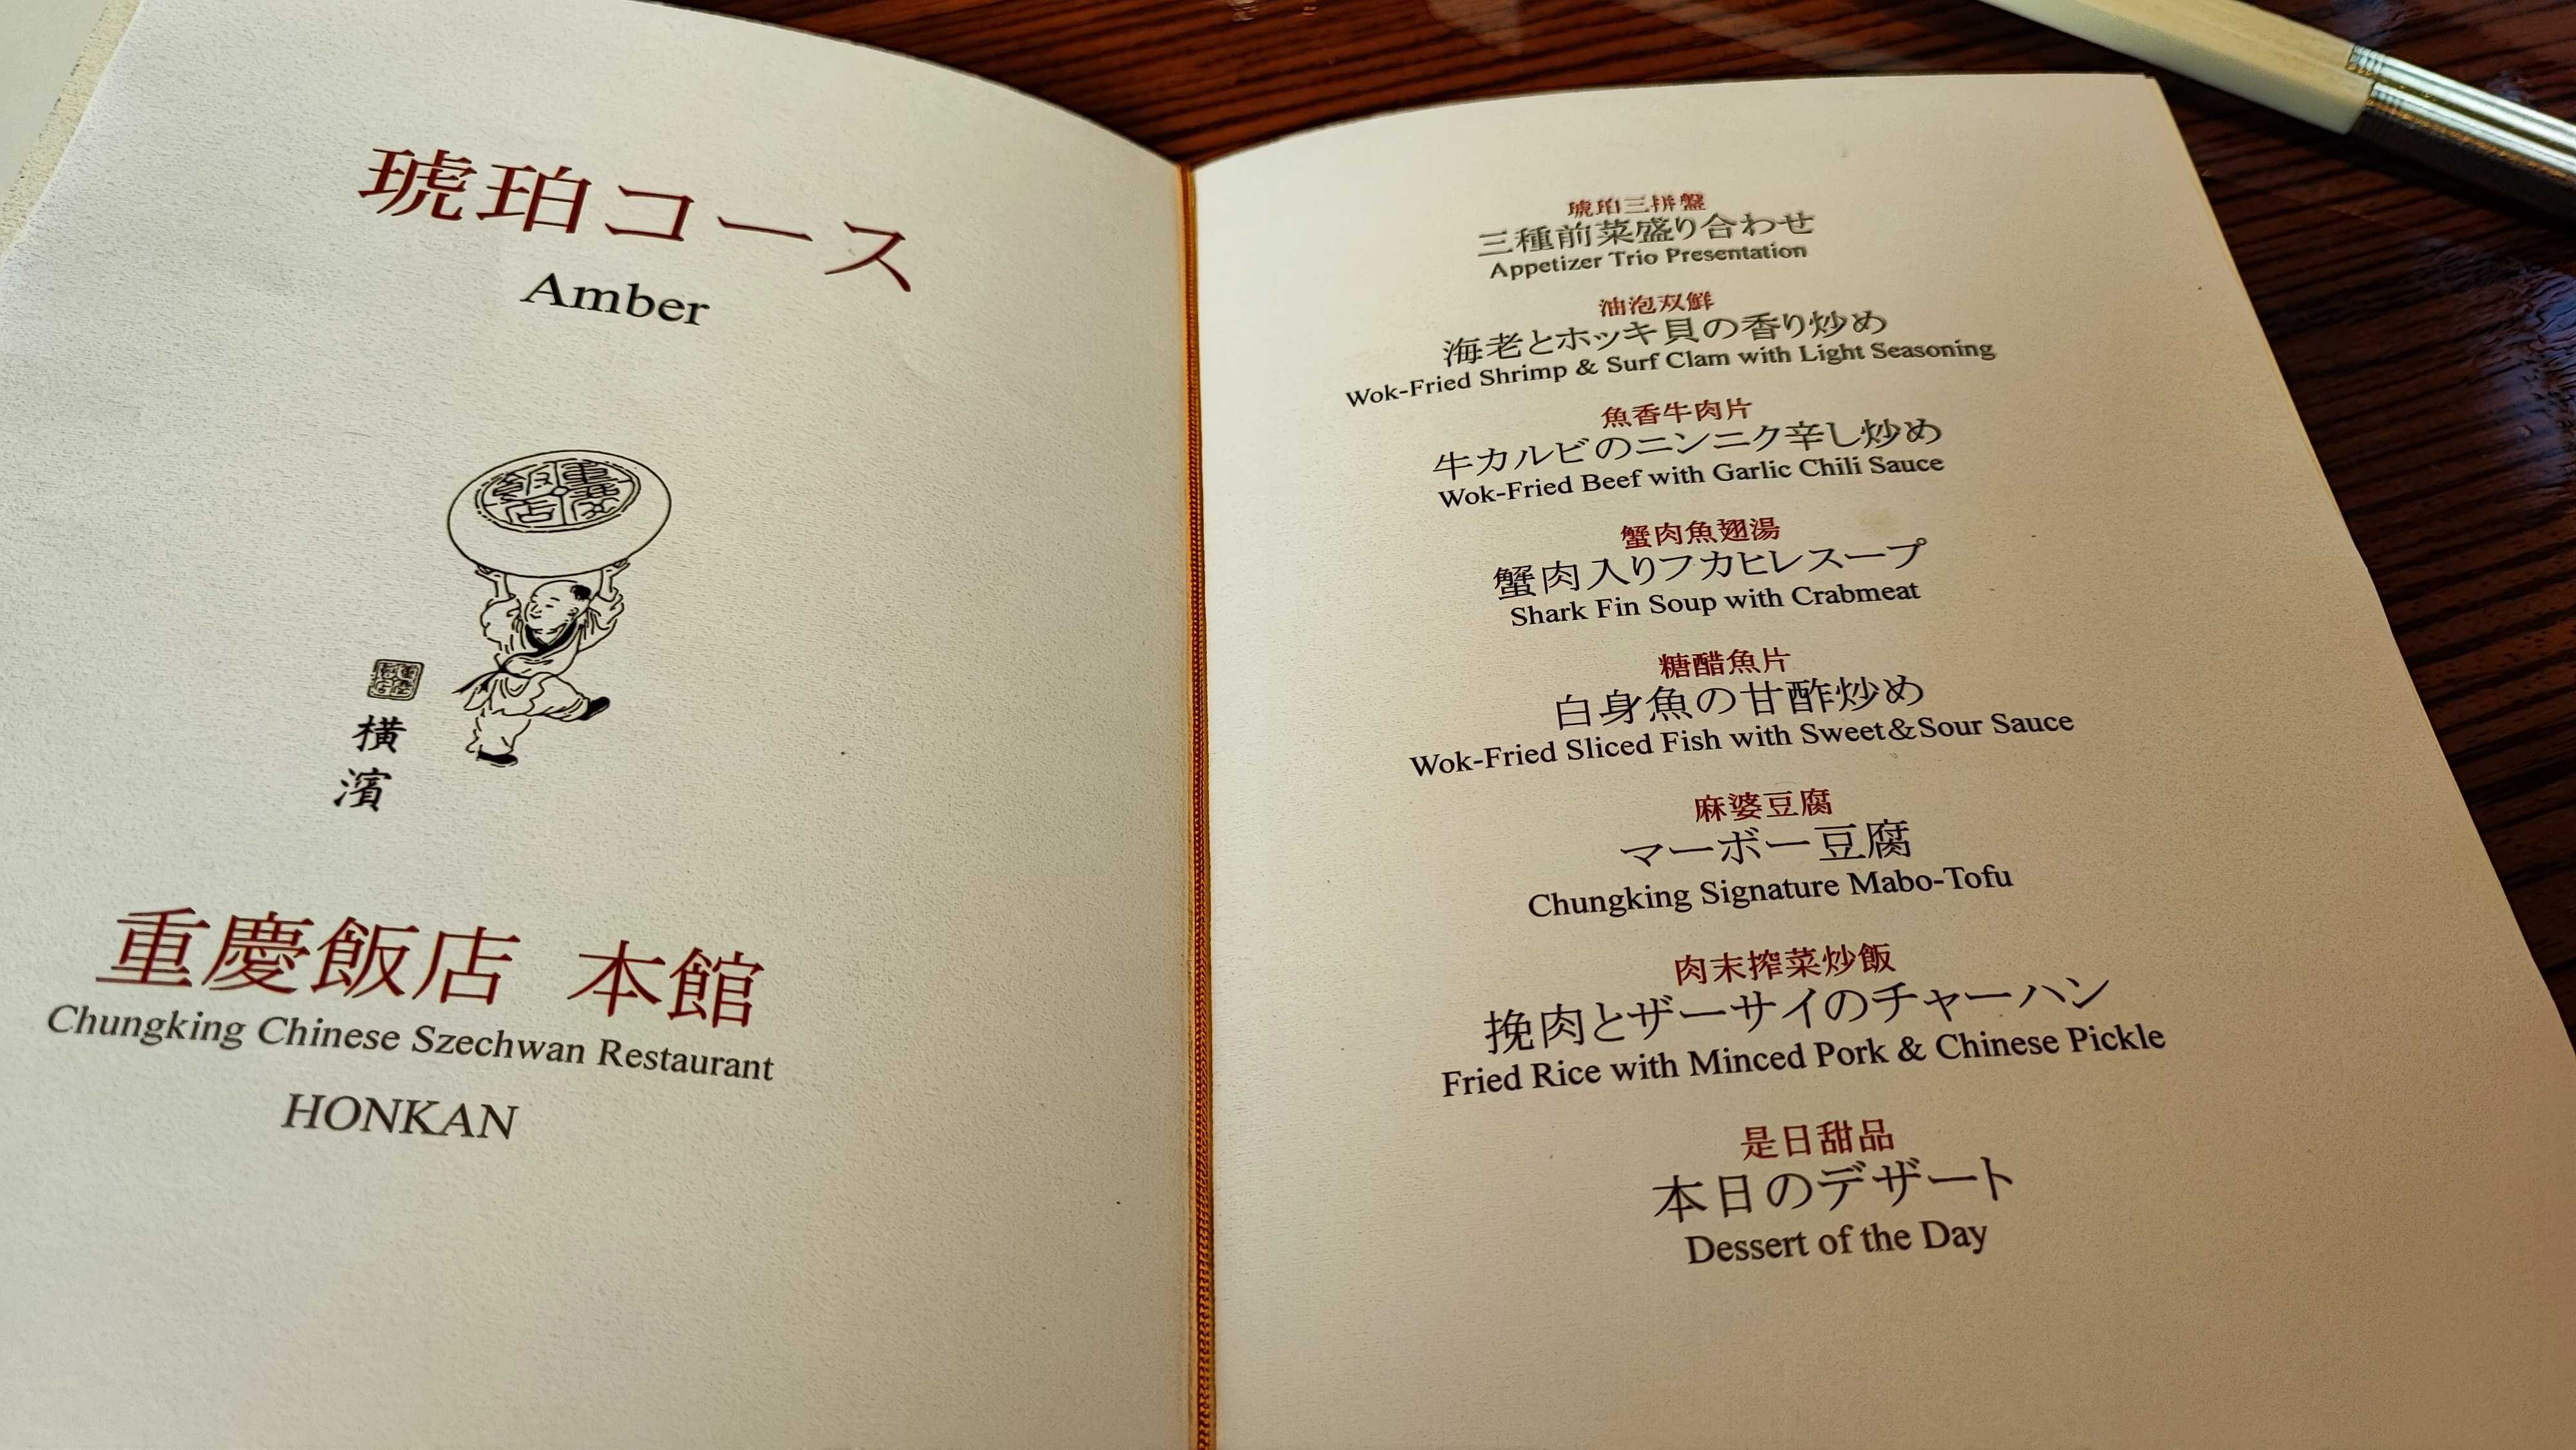 琥珀コース
Amber
重慶飯店
横
濱
重慶飯店 本館
Chungking Chinese Szechwan Restaurant
HONKAN
琥珀三拼盤
三種前菜盛り合わせ
Appetizer Trio Presentation
油泡双鮮
海老とホッキ貝の香り炒め
Wok-Fried Shrimp & Surf Clam with Light Seasoning
魚香牛肉片
牛カルビのニンニク辛し炒め
Wok-Fried Beef with Garlic Chili Sauce
蟹肉魚翅湯
蟹肉入りフカヒレスープ
Shark Fin Soup with Crabmeat
糖醋魚片
白身魚の甘酢炒め
Wok-Fried Sliced Fish with Sweet&Sour Sauce
麻婆豆腐
マーボー豆腐
Chungking Signature Mabo-Tofu
肉末搾菜炒飯
挽肉とザーサイのチャーハン
Fried Rice with Minced Pork & Chinese Pickle
是日甜品
本日のデザート
Dessert of the Day